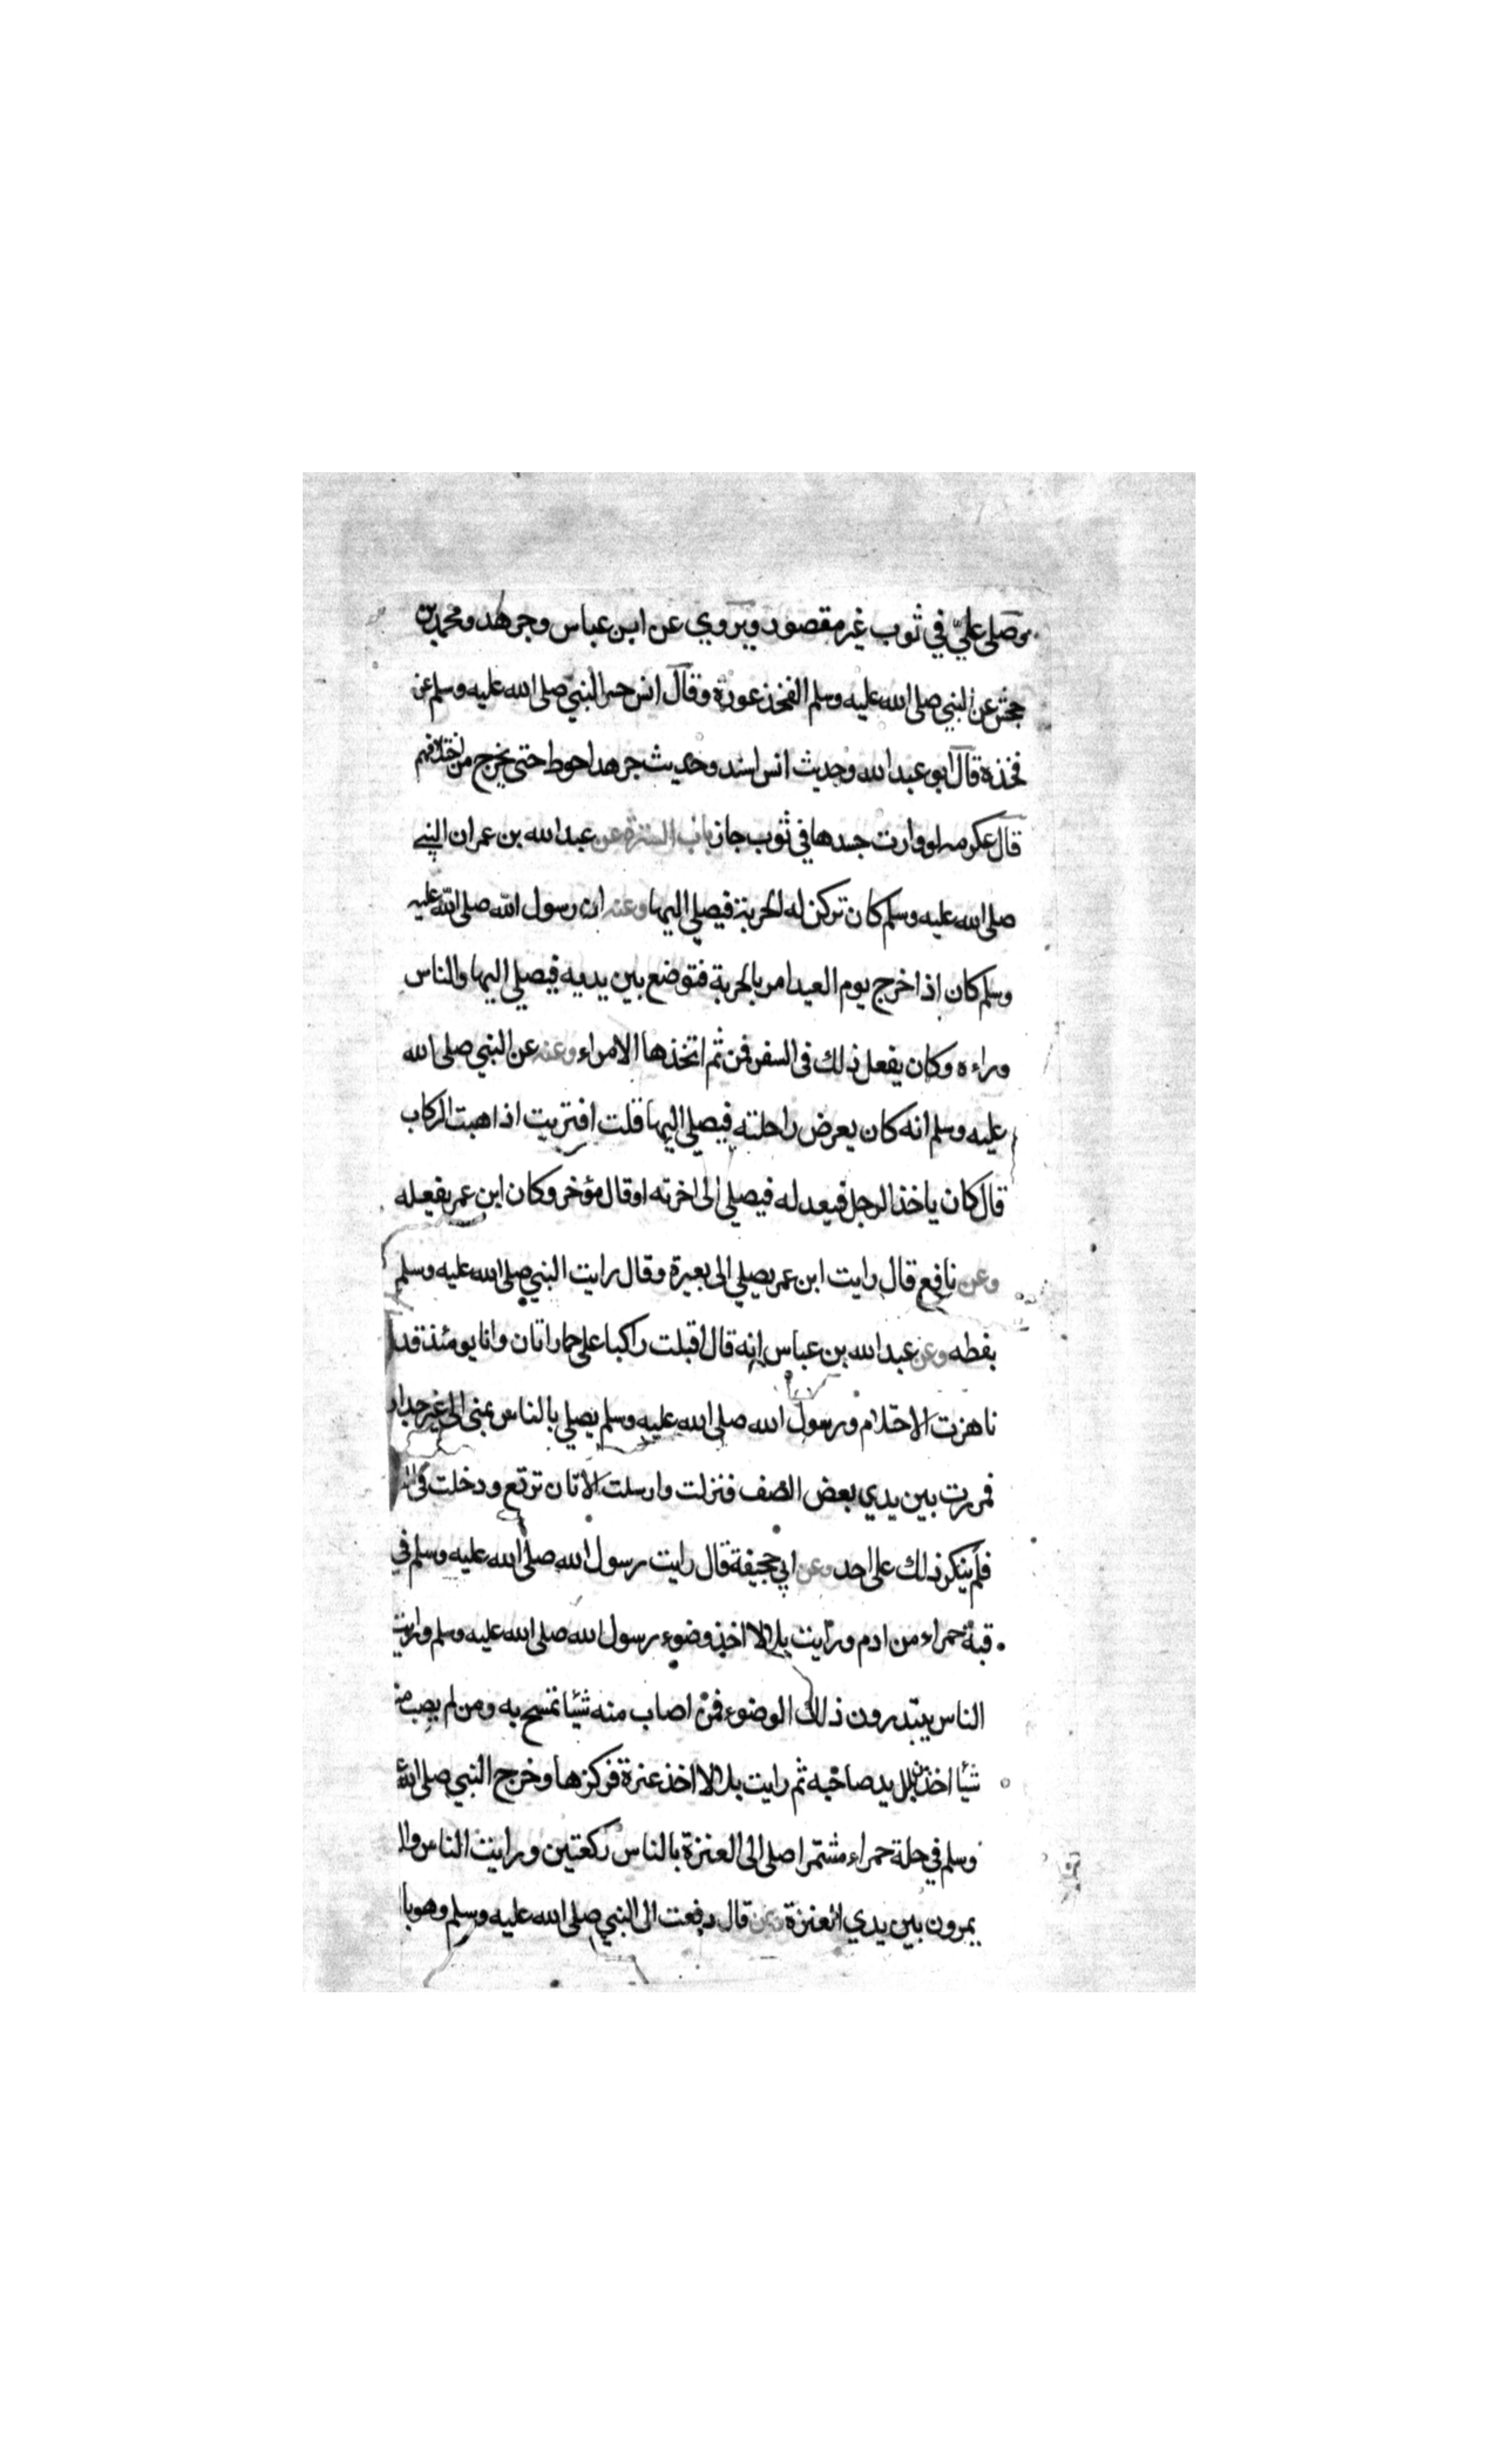 وصلى علي في ثوب غير مقصور ويروي عن ابن عباس وجرهد ومحمد بن
جحش عن النبي صلى الله عليه وسلم الفخذ عورة وقال انس حسر النبي صلى الله عليه وسلم عن
فخذه قال ابو عبد الله وحديث انس اسند وحديث جرهد احوط حتى يخرج من اختلافهم
قال عكرمه لو وارت جسدها في ثوب جاز باب السترة عن عبد الله بن عمر ان النبي
صلى الله عليه وسلم كان تركز له الحربة فيصلي اليها وعنه ان رسول الله صلى الله عليه
وسلم كان اذا خرج يوم العيد امر بالحربة فتوضع بين يديه فيصلي اليها والناس
وراءه وكان يفعل ذلك فى السفر فمن ثم اتخذها الامراء وعنه عن النبي صلى الله
عليه وسلم انه كان يعرض راحلته فيصلي اليها قلت افتريت اذا هبت الركاب
قال كان ياخذ الرحل فيعدله فيصلي الى اخرته او قال مؤخر وكان ابن عمر يفعله
وعن نافع قال رايت ابن عمر يصلي الى بعيرة وقال رايت النبي صلى الله عليه وسلم
يفعله وعن عبد الله بن عباس انه قال اقبلت راكبا على حمار اتان وانا يومئذ قد
ناهزت الاحتلام ورسول الله صلى الله عليه وسلم يصلي بالناس بمنى الى غير جدار
فمررت بين يدي بعض الصف فنزلت وارسلت الاتان ترتع ودخلت في
فلم ينكر ذلك على احد وعن ابي جحيفة قال رايت رسول الله صلى الله عليه وسلم في
قبة حمراء من ادم ورايت بلالا اخذ وضوء رسول الله صلى الله عليه وسلم ورايت
الناس يبتدرون ذلك الوضوء فمن اصاب منه شيئا تمسح به ومن لم يصب منه
شيئا اخذ من بلل يد صاحبه ثم رايت بلالا اخذ عنزة فركزها وخرج النبي صلى الله
وسلم في حلة حمراء مشتمرا صلى الى العنزة بالناس ركعتين ورايت الناس
يمرون بين يدي العنزة وعن قال دفعت الى النبي صلى الله عليه وسلم وهو